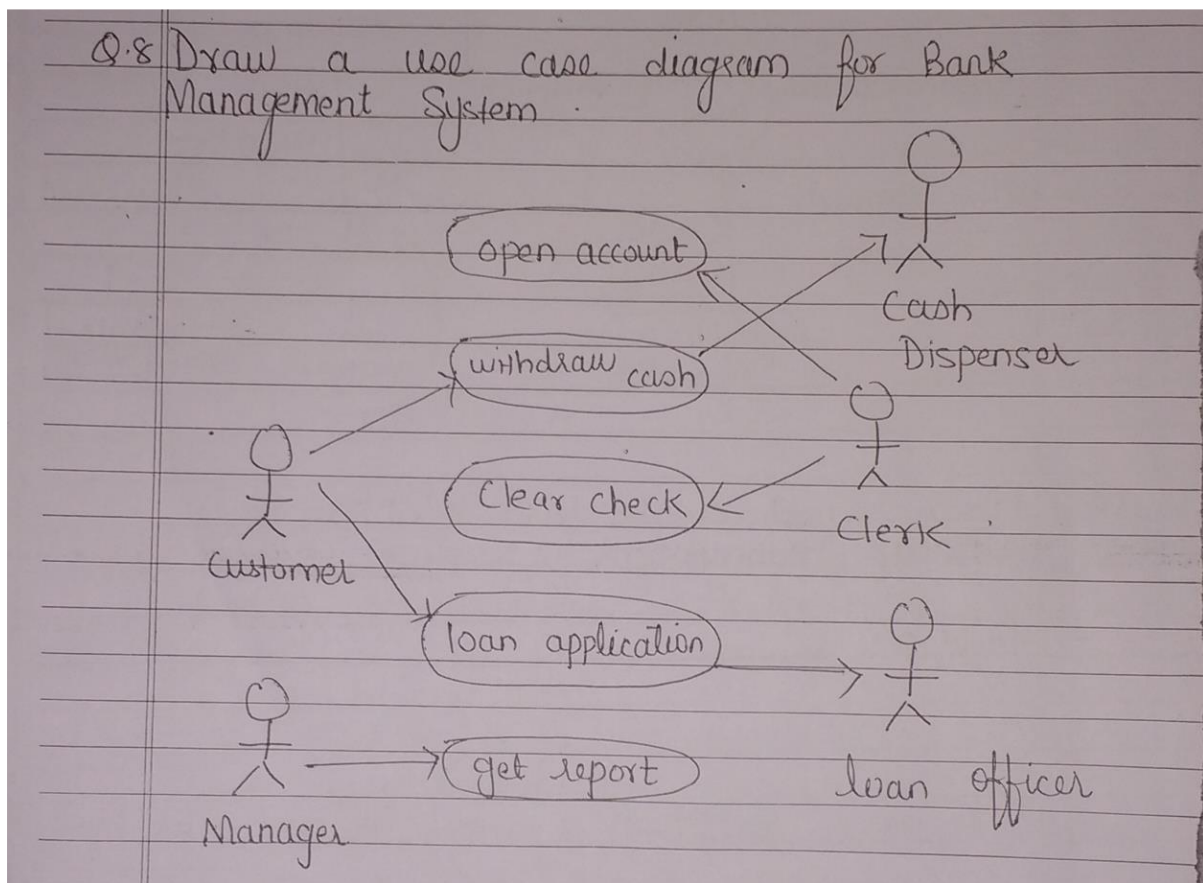 Q.8 Draw a use case diagram for Bank
Management System.
open account
Cash
Dispenser
withdraw cash
Clear check
Clerk
Customer
loan application
get report
loan officer
Manager